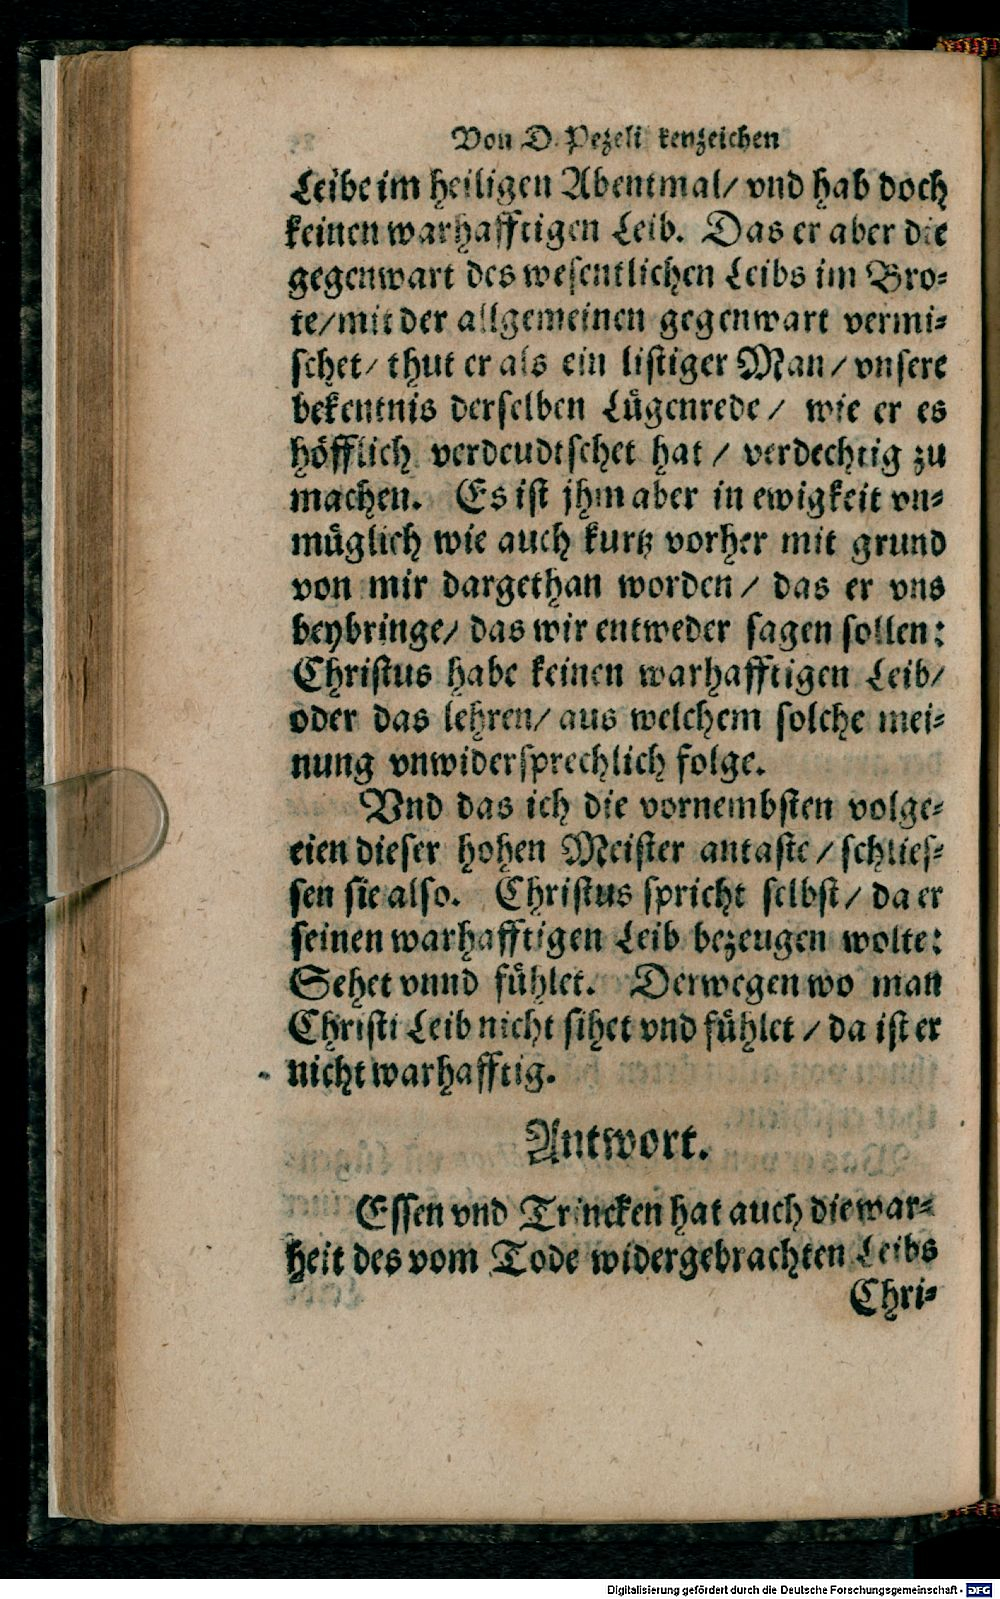 Von D. Pezeli kenzeichen
Leibe im heiligen Abentmal/ vnd hab doch
keinen warhafftigen Leib. Das er aber die
gegenwart des wesentlichen Leibs im Bro-
te/ mit der allgemeinen gegenwart vermi-
schet/ thut er als ein listiger Man/ vnsere
bekentnis derselben Lügenrede/ wie er es
höfflich verdeudtschet hat/ verdechtig zu
machen. Es ist jhm aber in ewigkeit vn-
müglich wie auch kurtz vorher mit grund
von mir dargethan worden/ das er vns
beybringe/ das wir entweder sagen sollen:
Christus habe keinen warhafftigen Leib/
oder das lehren/ aus welchem solche mei-
nung vnwidersprechlich folge.
Vnd das ich die vornembsten volge-
eien dieser hohen Meister antaste/ schlies-
sen sie also. Christus spricht selbst/ da er
seinen warhafftigen Leib bezeugen wolte:
Sehet vnnd fühlet. Derwegen wo man
Christi Leib nicht sihet vnd fühlet/ da ist er
nicht warhafftig.
Antwort.
Essen vnd Trincken hat auch die war-
heit des vom Tode widergebrachten Leibs
Chri-
Digitalisierung gefördert durch die Deutsche Forschungsgemeinschaft - DFG